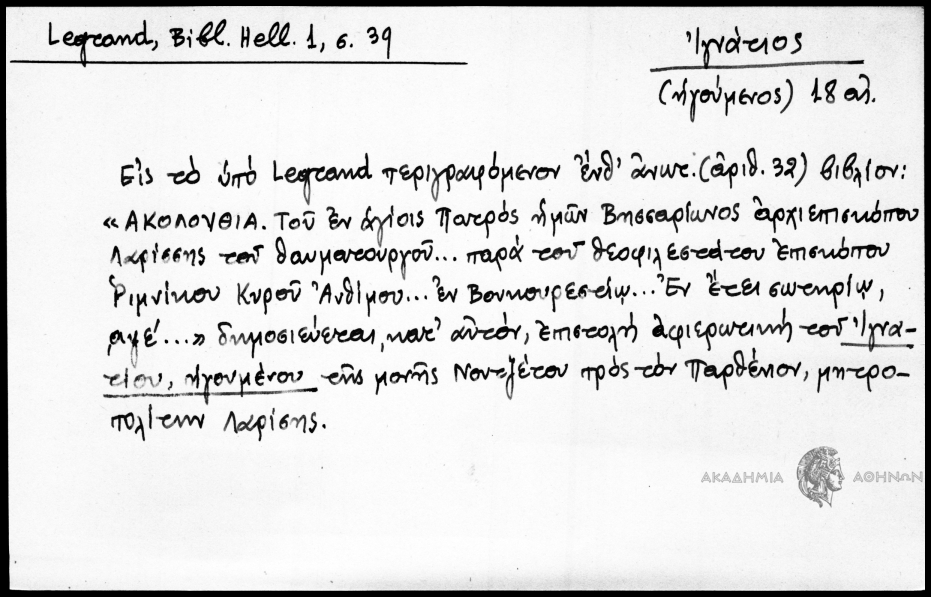 Legrand, Bibl. Hell. 1, σ. 39
Ἰγνάτιος
(ἡγούμενος) 18 αἰ.
Εἰς τὸ ὑπὸ Legrand περιγραφόμενον ἔνθ' ἄνωτ. (ἀριθ. 32) βιβλίον:
«ΑΚΟΛΟΥΘΙΑ. Τοῦ ἐν ἁγίοις Πατρὸς ἡμῶν Βησσαρίωνος ἀρχιεπισκόπου
Λαρίσσης τοῦ θαυματουργοῦ... παρὰ τοῦ θεοφιλεστάτου ἐπισκόπου
Ῥιμνίκου Κυροῦ Ἀνθίμου... ἐν Βουκουρεστίῳ... Ἐν ἔτει σωτηρίῳ,
αψε´...» δημοσιεύεται, κατ' αὐτόν, ἐπιστολὴ ἀφιερωτικὴ τοῦ Ἰγνα-
τίου, ἡγουμένου τῆς μονῆς Νουτζέτου πρὸς τὸν Παρθένιον, μητρο-
πολίτην Λαρίσης.
ΑΚΑΔΗΜΙΑ ΑΘΗΝΩΝ